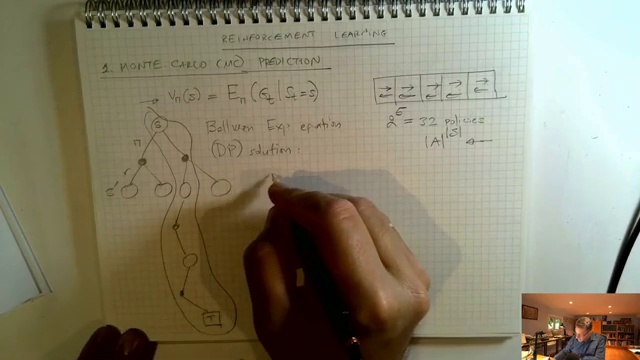 REINFORCEMENT LEARNING
1. MONTE-CARLO (MC) PREDICTION
Vπ(s) = Eπ(Gt | St=s)
Bellman Exp. equation
(DP) solution:
2^5 = 32 policies
|A|^|S|
S
π
r
s'
T